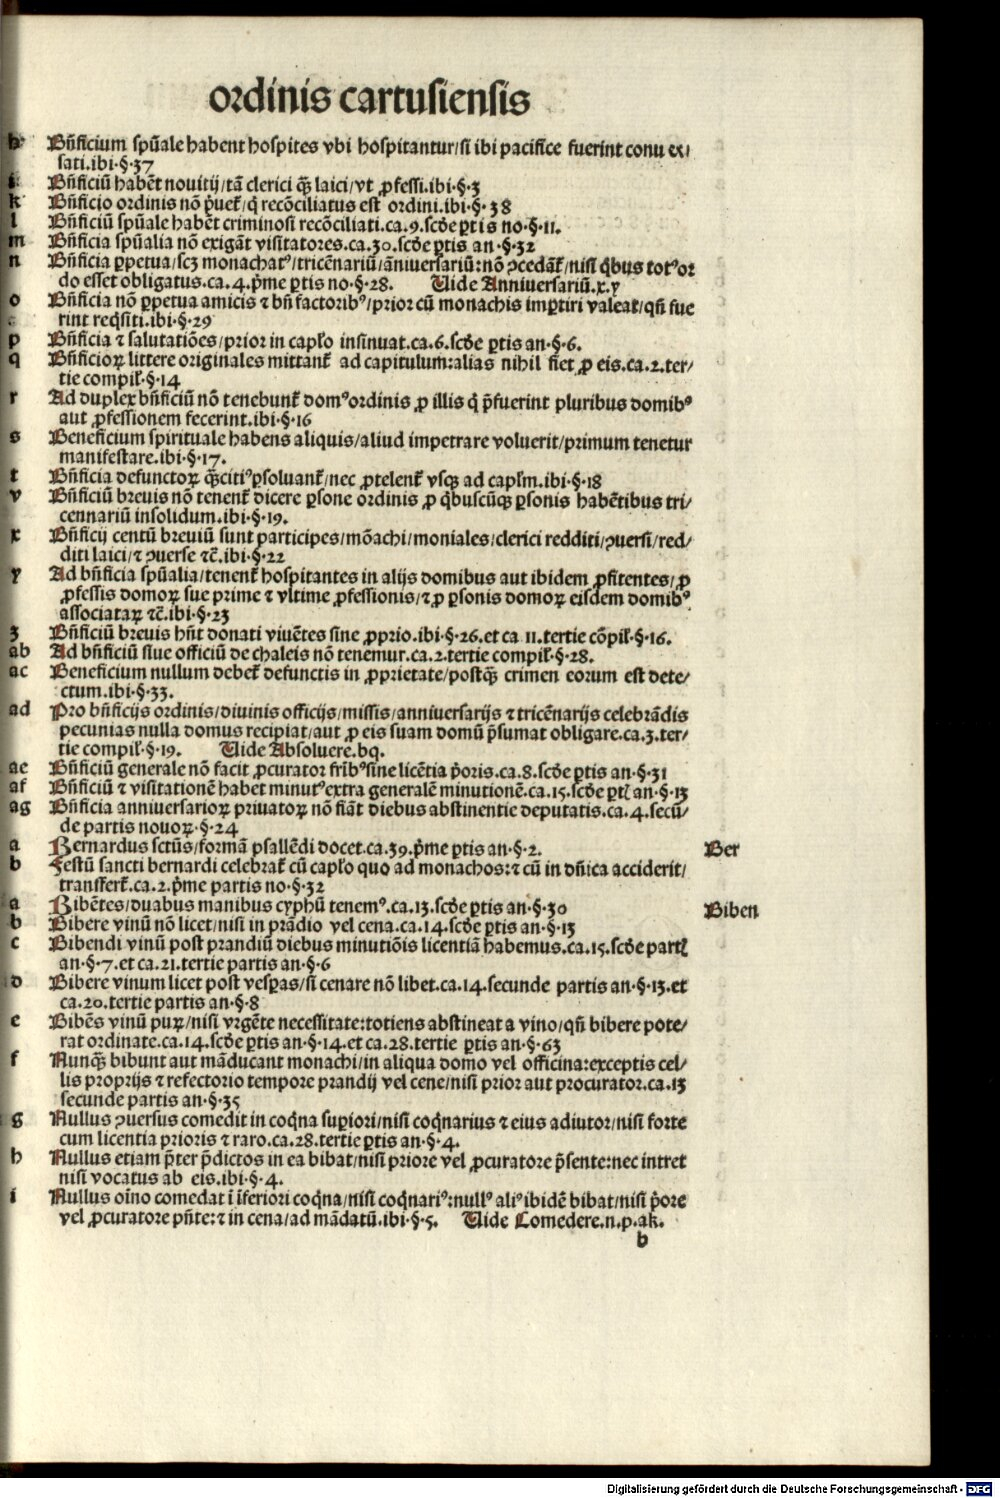 ordinis cartusiensis
h Bn̄ficium spūale habent hospites vbi hospitantur/si ibi pacifice fuerint conuerſ/
sati.ibi.§.37
i Bn̄ficiū habēt nouitij/tā clerici qꝫ̄ laici/vt ꝓfessi.ibi.§.3
k Bn̄ficio ordinis nō p̄uet̄/q̇ recōciliatus est ordini.ibi.§.38
l Bn̄ficiū spūale habēt criminosi recōciliati.ca.9.scd̄e ꝑtis no.§.11.
m Bn̄ficia spūalia nō exigāt visitatores.ca.30.scd̄e ꝑtis an.§.32
n Bn̄ficia ꝑpetua/scꝫ monachatꝰ/tricēnariū/āniuersariū:nō ꝯcedāt̄/nisi q̇bus totꝰor
do esset obligatus.ca.4.p̄me ꝑtis no.§.28. Uide Anniuersariū.x.y
o Bn̄ficia nō ꝑpetua amicis ⁊ bn̄ factoribꝰ/prior cū monachis imꝑtiri valeat/qn̄ fue
rint req̇siti.ibi.§.29
p Bn̄ficia ⁊ salutatiōes/prior in capl̄o insinuat.ca.6.scd̄e ꝑtis an.§.6.
q Bn̄ficioꝝ littere originales mittant̄ ad capitulum:alias nihil fiet ꝓ eis.ca.2.ter/
tie compil̄.§.14
r Ad duplex bn̄ficiū nō tenebunt̄ domꝰordinis ꝓ illis q̇ p̄fuerint pluribus domibꝰ
aut ꝓfessionem fecerint.ibi.§.16
s Beneficium spirituale habens aliquis/aliud impetrare voluerit/primum tenetur
manifestare.ibi.§.17.
t Bn̄ficia defunctoꝝ qꝫ̄citiꝰꝑsoluant̄/nec ꝓtelent̄ vsqꝫ ad capl̄m.ibi.§.18
v Bn̄ficiū breuis nō tenent̄ dicere ꝑsone ordinis ꝓ q̇buscūqꝫ ꝑsonis habētibus tri/
cennariū insolidum.ibi.§.19.
x Bn̄ficij centū breuiū sunt participes/mōachi/moniales/clerici redditi/ꝯuersi/red/
diti laici/⁊ ꝯuerse ⁊c̄.ibi.§.22
y Ad bn̄ficia spūalia/tenent̄ hospitantes in alijs domibus aut ibidem ꝓfitentes/ꝓ
ꝓfessis domoꝝ sue prime ⁊ vltime ꝓfessionis/⁊ ꝓ ꝑsonis domoꝝ eisdem domibꝰ
associataꝝ ⁊c̄.ibi.§.23
ꝫ Bn̄ficiū breuis hn̄t donati viuētes sine ꝓprio.ibi.§.26.et ca 11.tertie cōpil̄.§.16.
ab Ad bn̄ficiū siue officiū de chaleis nō tenemur.ca.2.tertie compil̄.§.28.
ac Beneficium nullum debet̄ defunctis in ꝓprietate/postqꝫ̄ crimen eorum est dete/
ctum.ibi.§.33.
ad Pro bn̄ficijs ordinis/diuinis officijs/missis/anniuersarijs ⁊ tricēnarijs celebrādis
pecunias nulla domus recipiat/aut ꝓ eis suam domū p̄sumat obligare.ca.3.ter/
tie compil̄.§.19. Uide Absoluere.bq.
ae Bn̄ficiū generale nō facit ꝓcurator frībꝰsine licētia p̄oris.ca.8.scd̄e ꝑtis an.§.31
af Bn̄ficiū ⁊ visitationē habet minutꝰextra generalē minutionē.ca.15.scd̄e ꝑtꝭ an.§.13
ag Bn̄ficia anniuersarioꝝ priuatoꝝ nō fiāt diebus abstinentie deputatis.ca.4.secū/
de partis nouoꝝ.§.24
a Bernardus sctūs/formā psallēdi docet.ca.39.p̄me ꝑtis an.§.2. Ber
b Festū sancti bernardi celebrat̄ cū capl̄o quo ad monachos:⁊ cū in dn̄ica acciderit/
transfert̄.ca.2.p̄me partis no.§.32
a Bibētes/duabus manibus cyphū tenemꝰ.ca.13.scd̄e ꝑtis an.§.30 Biben
b Bibere vinū nō licet/nisi in prādio vel cena.ca.14.scd̄e ꝑtis an.§.13
c Bibendi vinū post prandiū diebus minutiōis licentiā habemus.ca.15.scd̄e partꝭ
an.§.7.et ca.21.tertie partis an.§.6
d Bibere vinum licet post vesꝑas/si cenare nō libet.ca.14.secunde partis an.§.13.et
ca.20.tertie partis an.§.8
e Bibēs vinū puꝝ/nisi vrgēte necessitate:totiens abstineat a vino/qn̄ bibere pote/
rat ordinate.ca.14.scd̄e ꝑtis an.§.14.et ca.28.tertie ꝑtis an.§.63
f Nunqꝫ̄ bibunt aut māducant monachi/in aliqua domo vel officina:exceptis cel/
lis proprijs ⁊ refectorio tempore prandij vel cene/nisi prior aut procurator.ca.13
secunde partis an.§.35
g Nullus ꝯuersus comedit in coq̇na suꝑiori/nisi coq̇narius ⁊ eius adiutor/nisi forte
cum licentia prioris ⁊ raro.ca.28.tertie ꝑtis an.§.4.
h Nullus etiam p̄ter p̄dictos in ea bibat/nisi priore vel ꝓcuratore p̄sente:nec intret
nisi vocatus ab eis.ibi.§.4.
i Nullus oīno comedat ī īferiori coq̇na/nisi coq̇nariꝰ:nullꝰ aliꝰ ibidē bibat/nisi p̄ore
vel ꝓcuratore pn̄te:⁊ in cena/ad mādatū.ibi.§.5. Uide Comedere.n.p.ak.
b
Digitalisierung gefördert durch die Deutsche Forschungsgemeinschaft - DFG